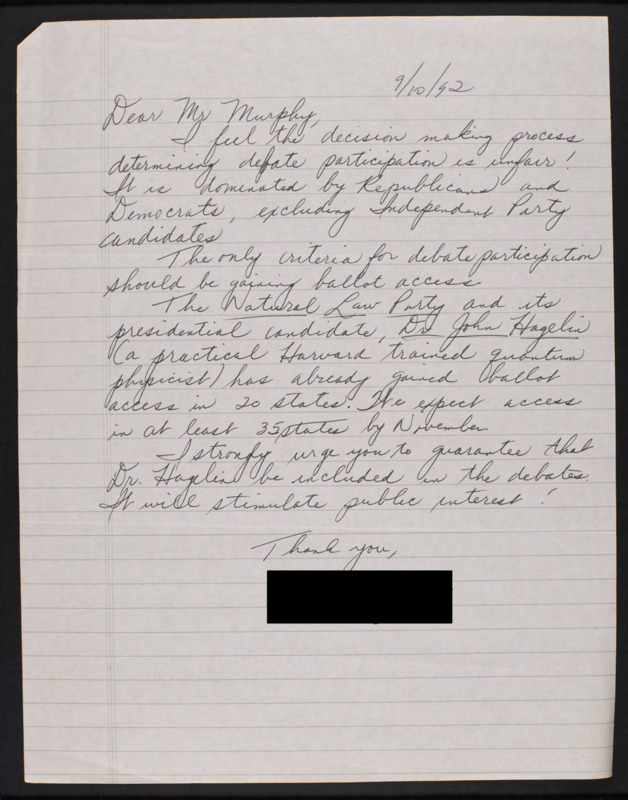 9/10/92
Dear Mr Murphy,
I feel the decision making process
determining debate participation is unfair!
It is dominated by Republicans and
Democrats, excluding Independent Party
candidates
The only criteria for debate participation
should be gaining ballot access.
The Natural Law Party and its
presidential candidate, Dr John Hagelin
(a practical Harvard trained quantum
physicist) has already gained ballot
access in 20 states. We expect access
in at least 35 states by November.
I strongly urge you to guarantee that
Dr. Hagelin be included in the debates.
It will stimulate public interest!
Thank you,